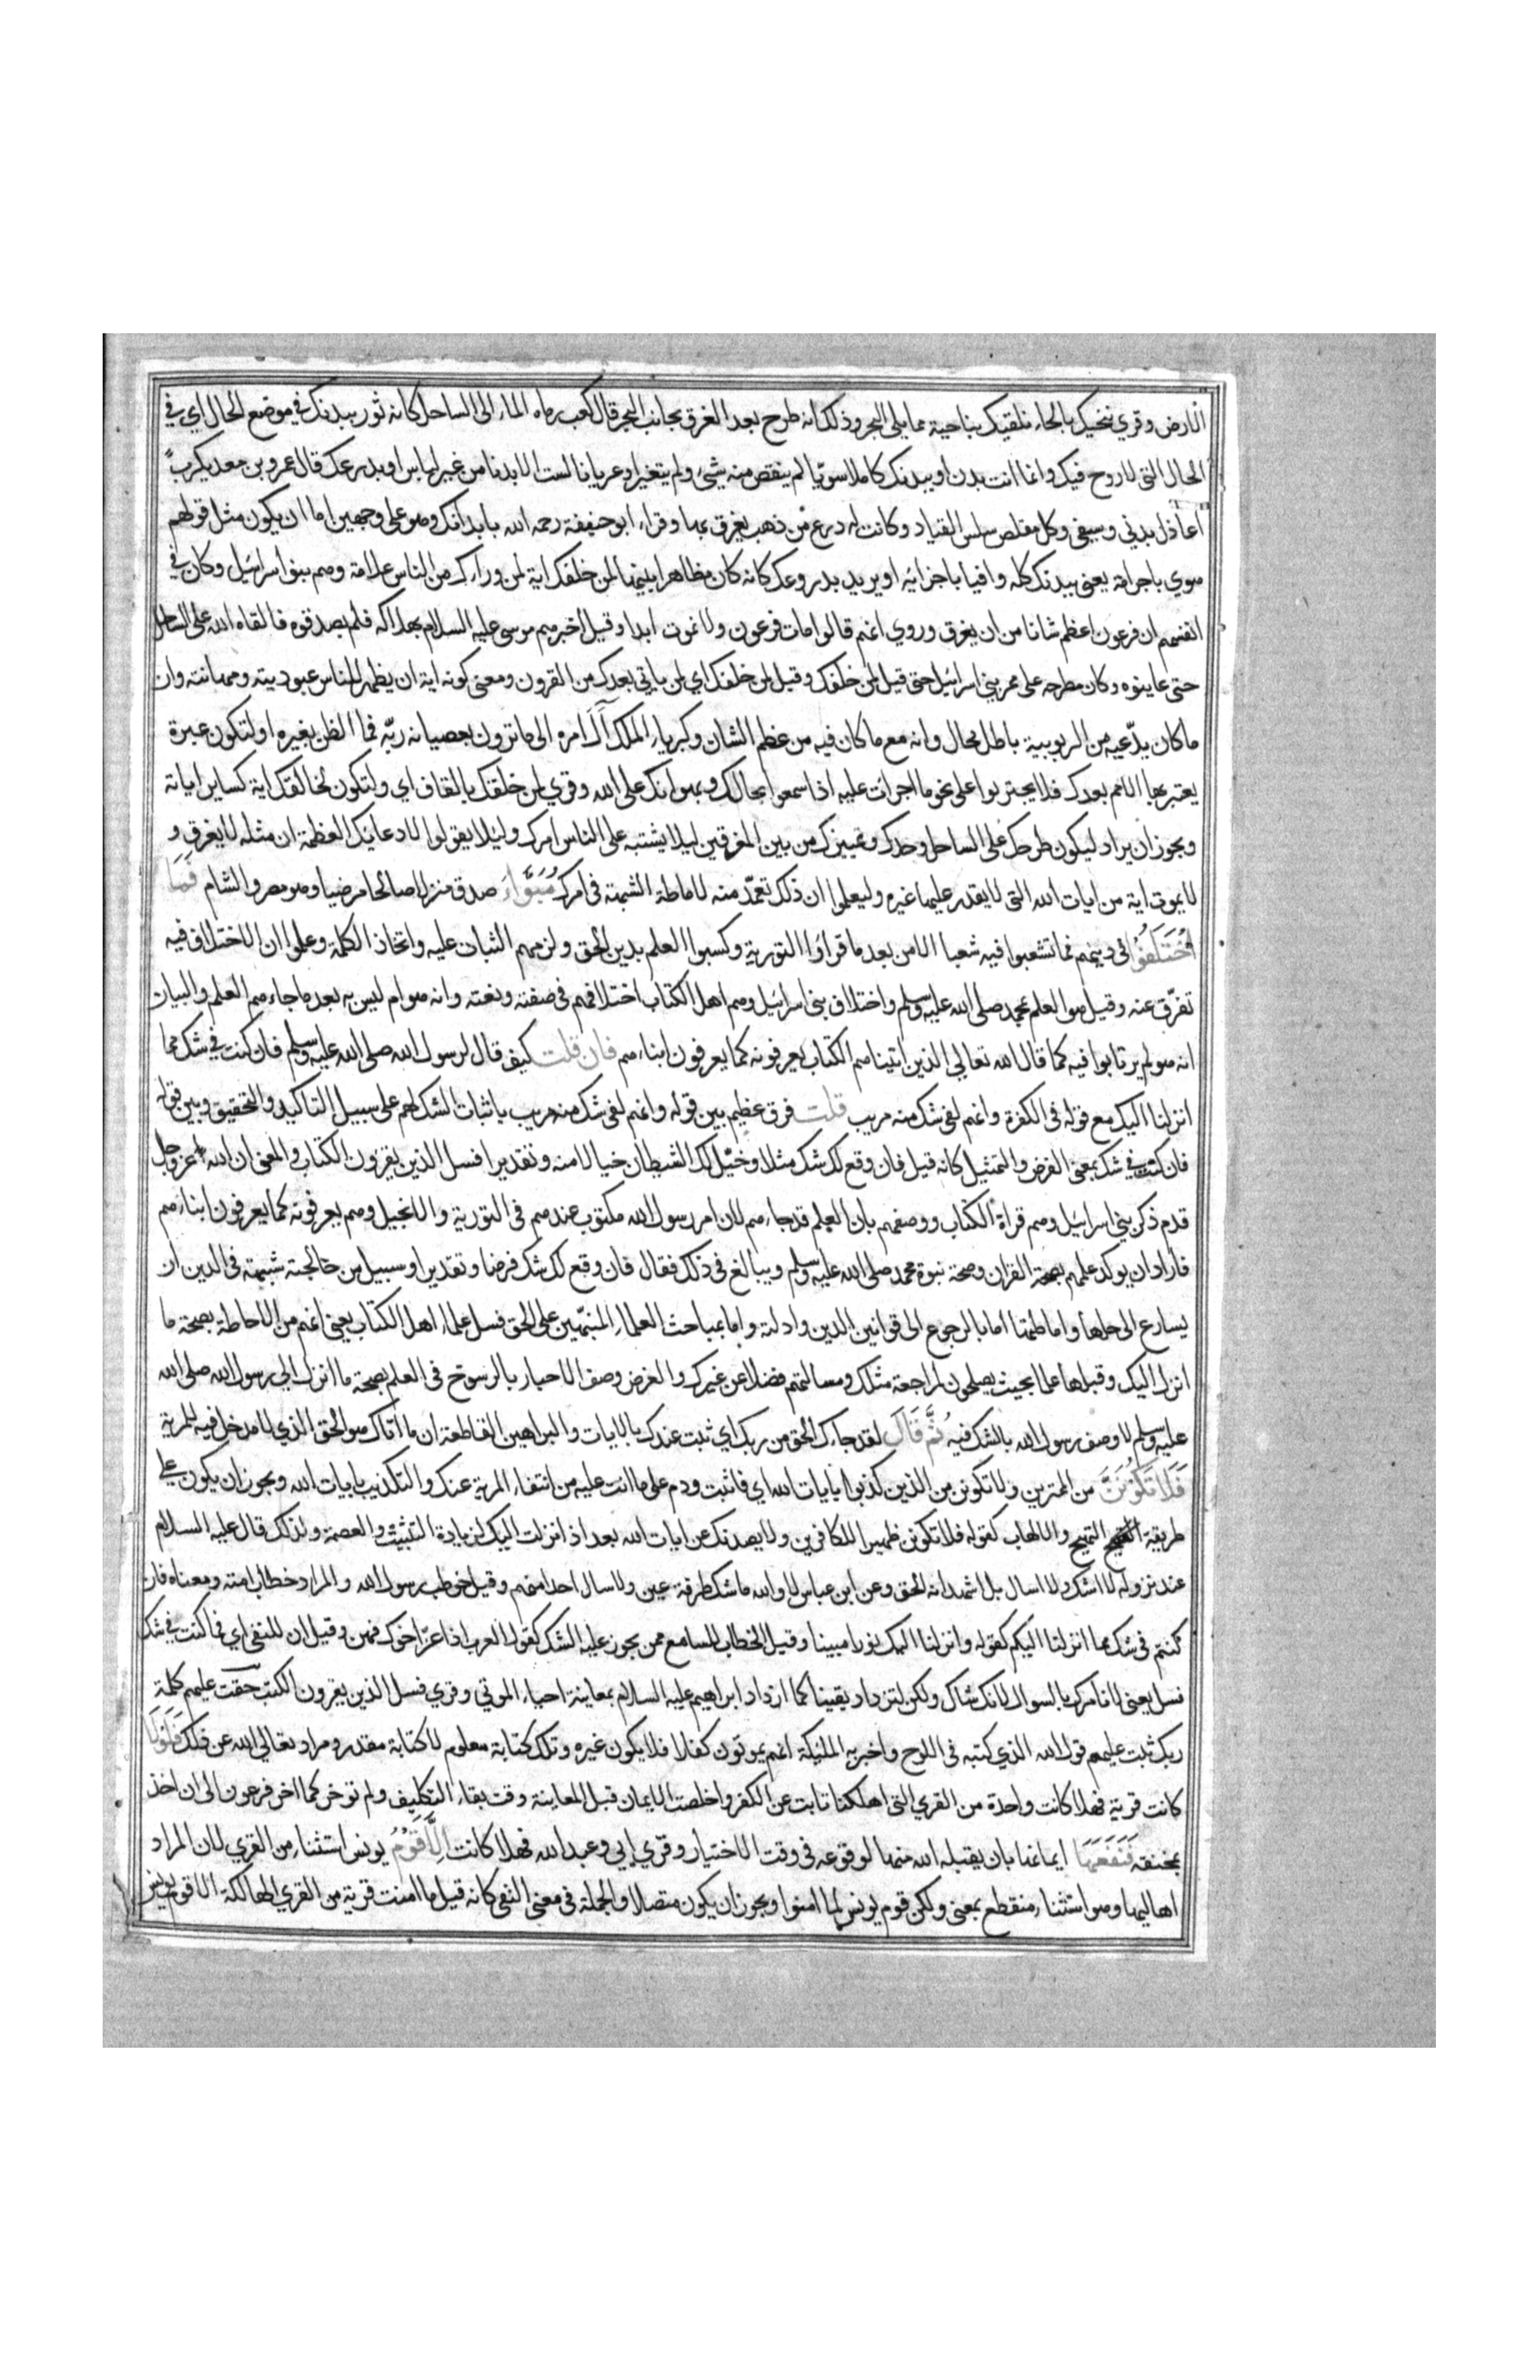 الارض وقري ننحيك بالحاء نلقيك بناحية مما يلى البحر وذلك انه طرح بعد الغرق بجانب البحر قال كعب رماه الماء الى الساحل كانه ثور ببدنك في موضع الحال اي في
الحال التى لا روح فيك وانما انت بدن او ببدنك كاملا سويّا لم ينقص منه شيئ ولم يتغير او عريانا لست الا بدنا من غير لباس او بدرعك قال عمرو بن معديكرب
اعاذل بدنى وسيفى وكل مقلص سلس القياد وكانت له درع من ذهب يعرف بها وقراء ابو حنيفة رحمه الله بابدانك وهو على وجهين اما ان يكون مثل قولهم
هوي باجرامه يعنى ببدنك كله وافيا باجزائه او يريد بدروعك كانه كان مظاهرا بينها لمن خلفك اية لمن وراءك من الناس علامة وهم بنوا اسرائيل وكان في
انفسهم ان فرعون اعظم شانا من ان يغرق وروي انهم قالوا مات فرعون ولا يموت ابدا وقيل اخبرهم موسى عليه السلام بهلاكه فلم يصدقوه فالقاه الله على الساحل
حتى عاينوه وكان مطرحه على ممر بني اسرائيل حتى قيل لمن خلفك وقيل لمن خلفك اي لمن ياتي بعدك من القرون ومعنى كونه اية ان يظهر للناس عبوديته ومهانته وان
ما كان يدّعيه من الربوبية باطل محال وانه مع ما كان فيه من عظم الشان وكبرياء الملك آل امره الى ما ترون لعصيانه ربّه فما الظن بغيره او لتكون عبرة
يعتبر بها الامم بعدك فلا يجترئوا على نحو ما اجرات عليه اذا سمعوا بحالك وبهوانك على الله وقري لمن خلقك بالقاف اي ولتكون لخالقك اية كساير اياته
ويجوز ان يراد ليكون طرحك على الساحل وحدك وتمييزك من بين المغرقين ليلا يشتبه على الناس امرك وليلا يقولوا لادعائك العظمة ان مثله لا يغرق و
لا يموت اية من ايات الله التى لا يقدر عليها غيره وليعلموا ان ذلك تعمّد منه لاماطة الشبهة فى امرك مُبَوَّاءَ صدق منزلا صالحا مرضيا وهو مصر والشام فَمَا
اخْتَلَفُوا فى دينهم فما تشعبوا فيه شعبا الا من بعد ما قراؤا التورية وكسبوا العلم بدين الحق ولزمهم الثبات عليه واتخاذ الكلمة وعلموا ان الاختلاف فيه
تفرّق عنه وقيل هو العلم بمحمد صلى الله عليه وسلم واختلاف بنى اسرائيل وهم اهل الكتاب اختلافهم فى صفته ونعته وانه هو ام ليس به بعد ما جاءهم العلم والبيان
انه هو لم يرتابوا فيه كما قال الله تعالى الذين اتيناهم الكتاب يعرفونه كما يعرفون ابناءهم فان قلت كيف قال لرسول الله صلى الله عليه وسلم فان كنت في شك مما
انزلنا اليك مع قوله فى الكفرة وانهم لفى شك منه مريب قلت فرق عظيم بين قوله وانهم لفى شك منه مريب باثبات الشك لهم على سبيل التاكيد والتحقيق وبين قوله
فان كنت في شك بمعنى الفرض والتمثيل كانه قيل فان وقع لك شك مثلا وخيّل لك الشيطان خيالا منه وتقديرا فسل الذين يقرون الكتاب والمعنى ان الله عز وجل
قدم ذكر بني اسرائيل وهم قراة الكتاب ووصفهم بان العلم قد جاءهم لان امر رسول الله مكتوب عندهم فى التورية والانجيل وهم يعرفونه كما يعرفون ابناءهم
فاراد ان يوكد علمهم بصحة القران وصحة نبوة محمد صلى الله عليه وسلم ويبالغ فى ذلك فقال فان وقع لك شك فرضا وتقديرا وسبيل من خالجته شبهة فى الدين ان
يسارع الى حلها واماطتها اما بالرجوع الى قوانين الدين وادلته واما بمباحث العلماء المنبهّين على الحق فسل علماء اهل الكتاب يعنى انهم من الاحاطة بصحة ما
انزل اليك وقبلها علما بحيث يصلحون لمراجعة مثلك ومسالتهم فضلا عن غيرك والغرض وصف الاحبار بالرسوخ فى العلم بصحة ما انزل الي رسول الله صلى الله
عليه وسلم لا وصف رسول الله بالشك فيه ثُمَّ قَالَ لقد جاءك الحق من ربك اي ثبت عندك بالايات والبراهين القاطعة ان ما اتاك هو الحق الذي لا مدخل فيه للمرية
فَلَا تَكُونَنَّ من الممترين ولا تكونن من الذين كذبوا بايات الله اي فاثبت ودم على ما انت عليه من انتفاء المرية عنك والتكذيب بايات الله ويجوز ان يكون على
طريقة التهييج والالهاب كقوله فلا تكونن ظهيرا للكافرين ولا يصدنك عن ايات الله بعد اذ انزلت اليك لزيادة التثبيت والعصمة ولذلك قال عليه السلام
عند نزوله لا اشك ولا اسال بل اشهد انه الحق وعن ابن عباس لا والله ما شك طرفة عين ولا سال احدا منهم وقيل خوطب رسول الله والمراد خطاب امته ومعناه فان
كنتم فى شك مما انزلنا اليكم كقوله وانزلنا اليك نورا مبينا وقيل الخطاب للسامع ممن يجوز عليه الشك كقول العرب اذا عزّ اخوك فهن وقيل ان للنفى اي فما كنت في شك
فسل يعنى لا نامرك بالسوال لانك شاك ولكن لتزداد يقينا كما ازداد ابراهيم عليه السلام بمعاينة احياء الموتي وقري فسل الذين يقرون الكتب حقت عليهم كلمة
ربك ثبت عليهم قول الله الذي كتبه فى اللوح واخبر به الملئيكة انهم يموتون كفارا فلا يكون غيره وتلك كتابة معلوم لا كتابة مقدر ومراد تعالى الله عن ذلك فَلَوْلَا
كانت قرية فهلا كانت واحدة من القري التى اهلكنا تابت عن الكفر واخلصت الايمان قبل المعاينة وقت بقاء التكليف ولم توخر كما اخر فرعون الى ان اخذ
بمخنقه فَنَفَعَهَا ايمانها بان يقبله الله منها لوقوعه فى وقت الاختيار وقري ابي وعبد الله فهلا كانت اِلَّا قَوْمُ يونس استثناء من القري لان المراد
اهاليها وهو استثناء منقطع بمعنى ولكن قوم يونس لما امنوا ويجوز ان يكون متصلا والجملة فى معنى النفى كانه قيل ما امنت قرية من القري الهالكة الا قوم يونس